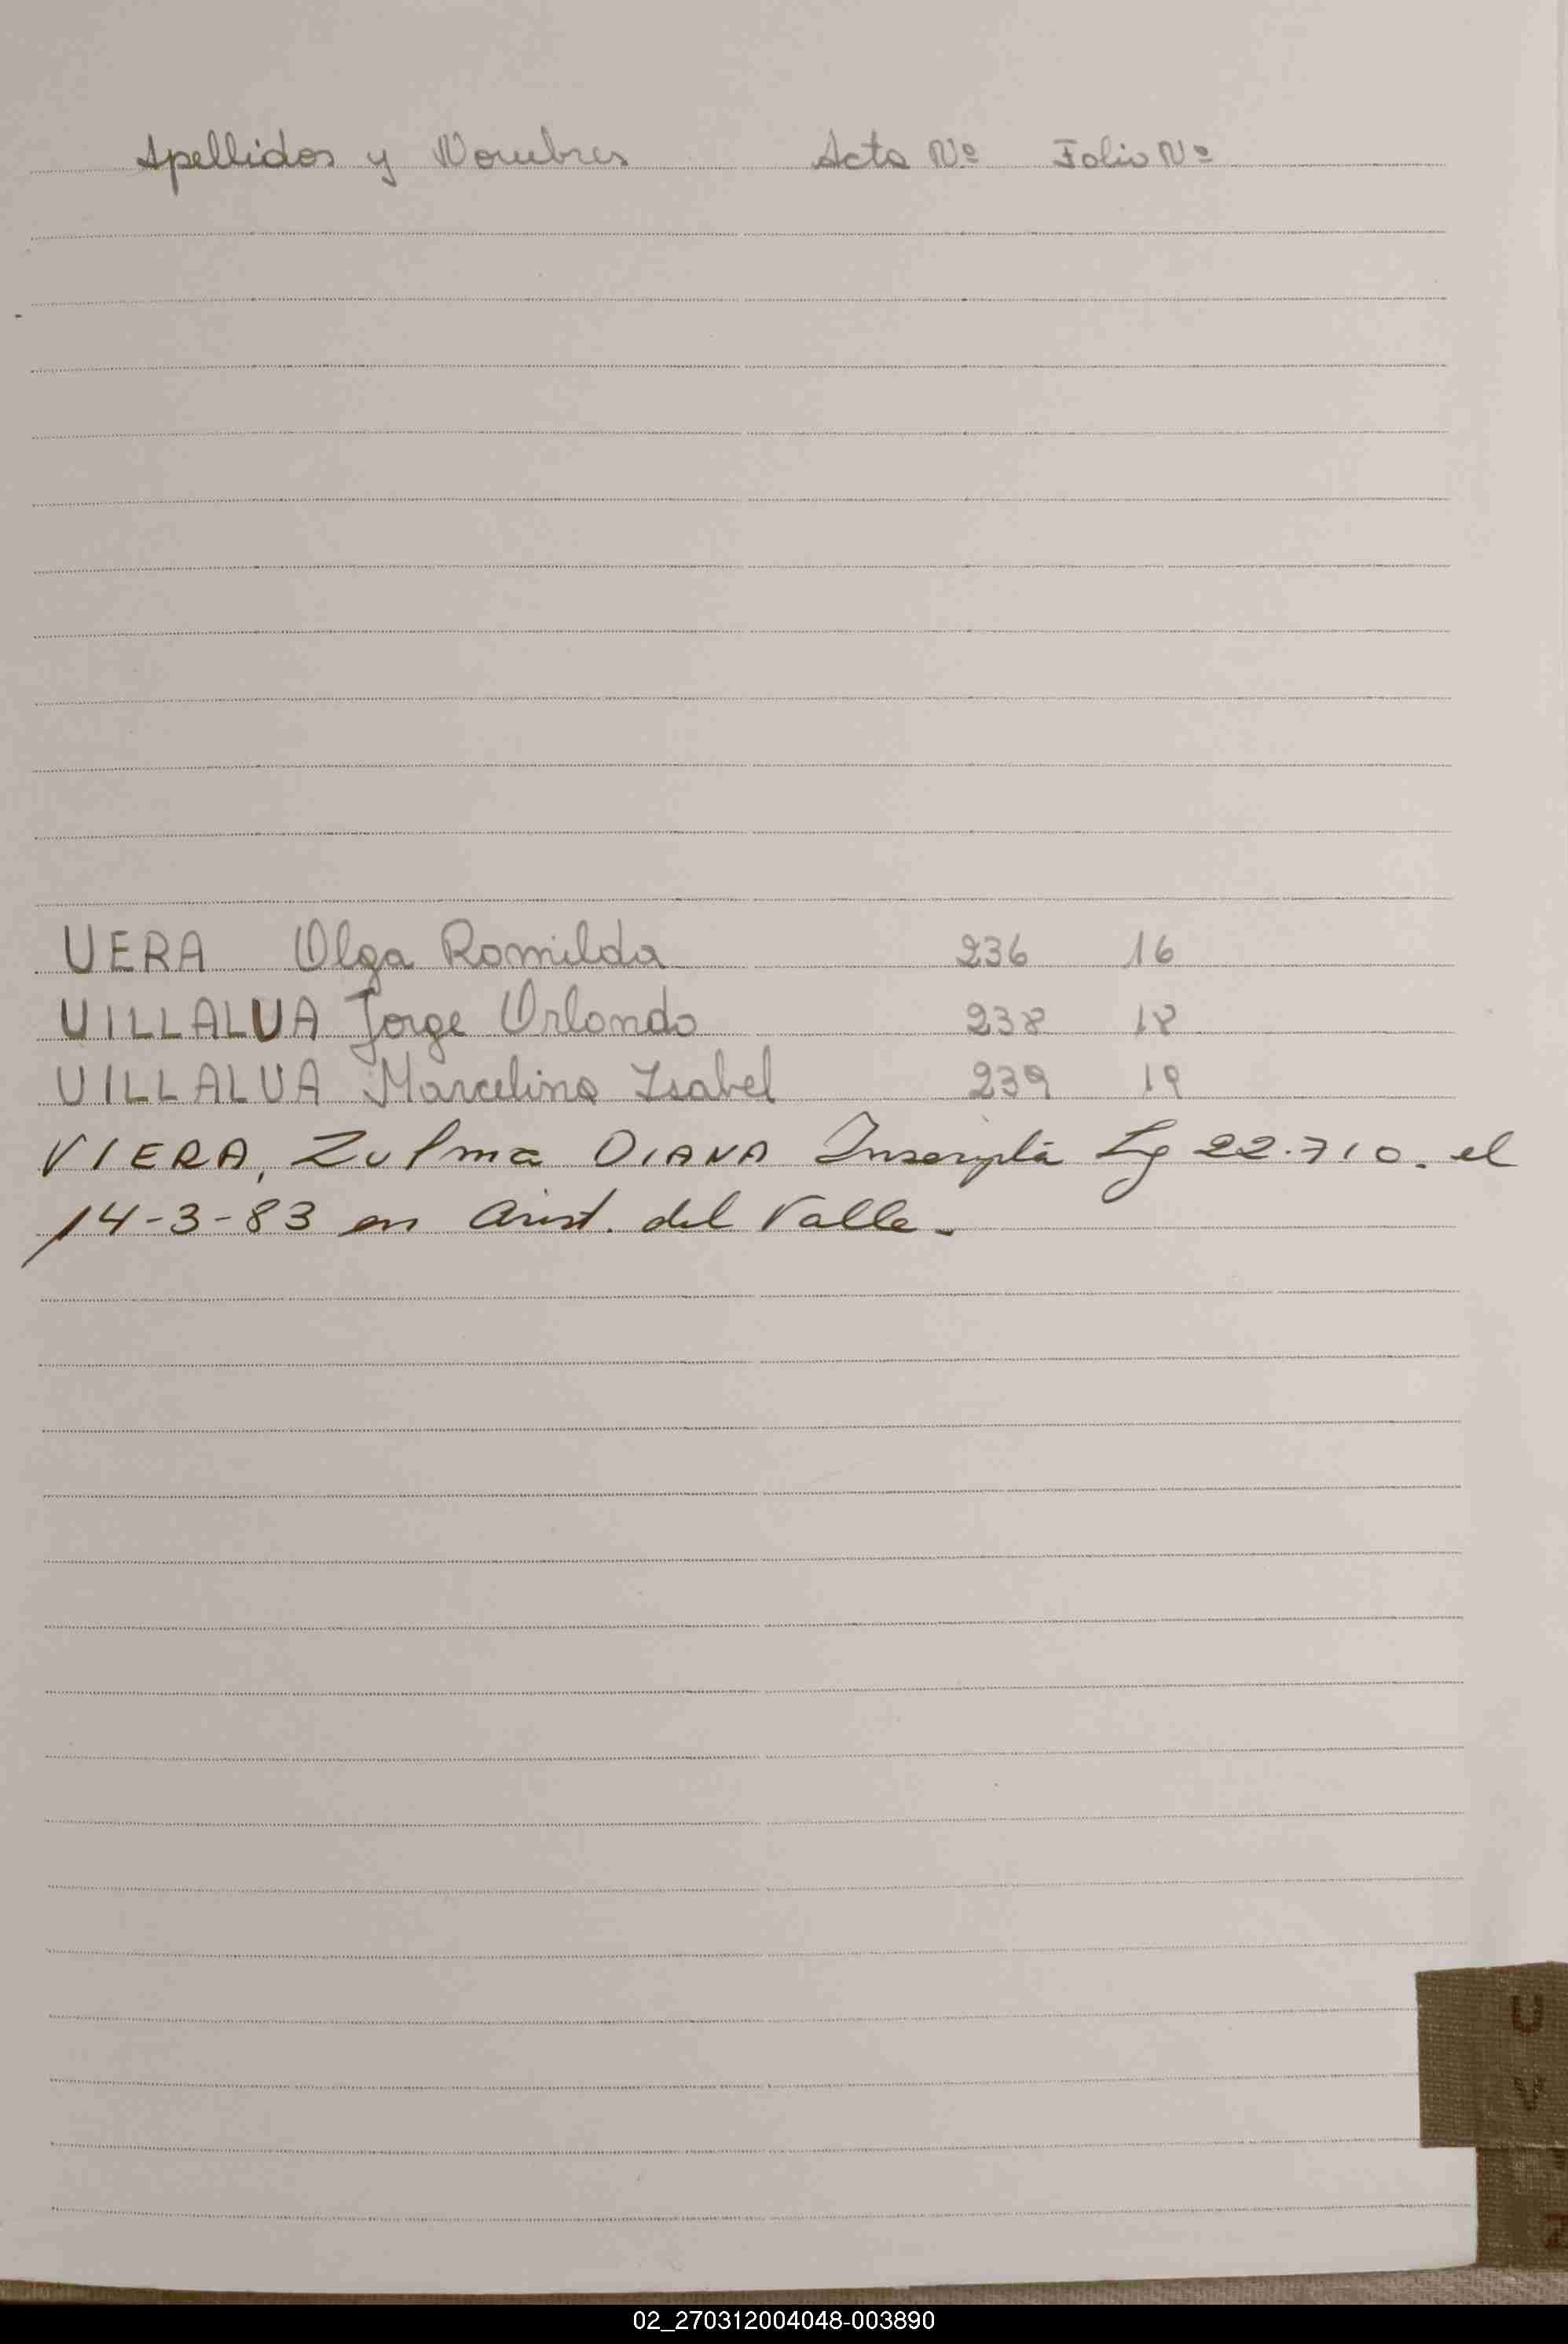 Apellidos y Nombres Acta Nº Folio Nº
VERA Olga Romilda 236 16
VILLALVA Jorge Orlando 238 18
VILLALVA Marcelina Isabel 239 19
VIERA, Zulma DIANA Inscripta Ly 22.710. el
14-3-83 en Arist. del Valle.-
U
V
Z
02_270312004048-003890